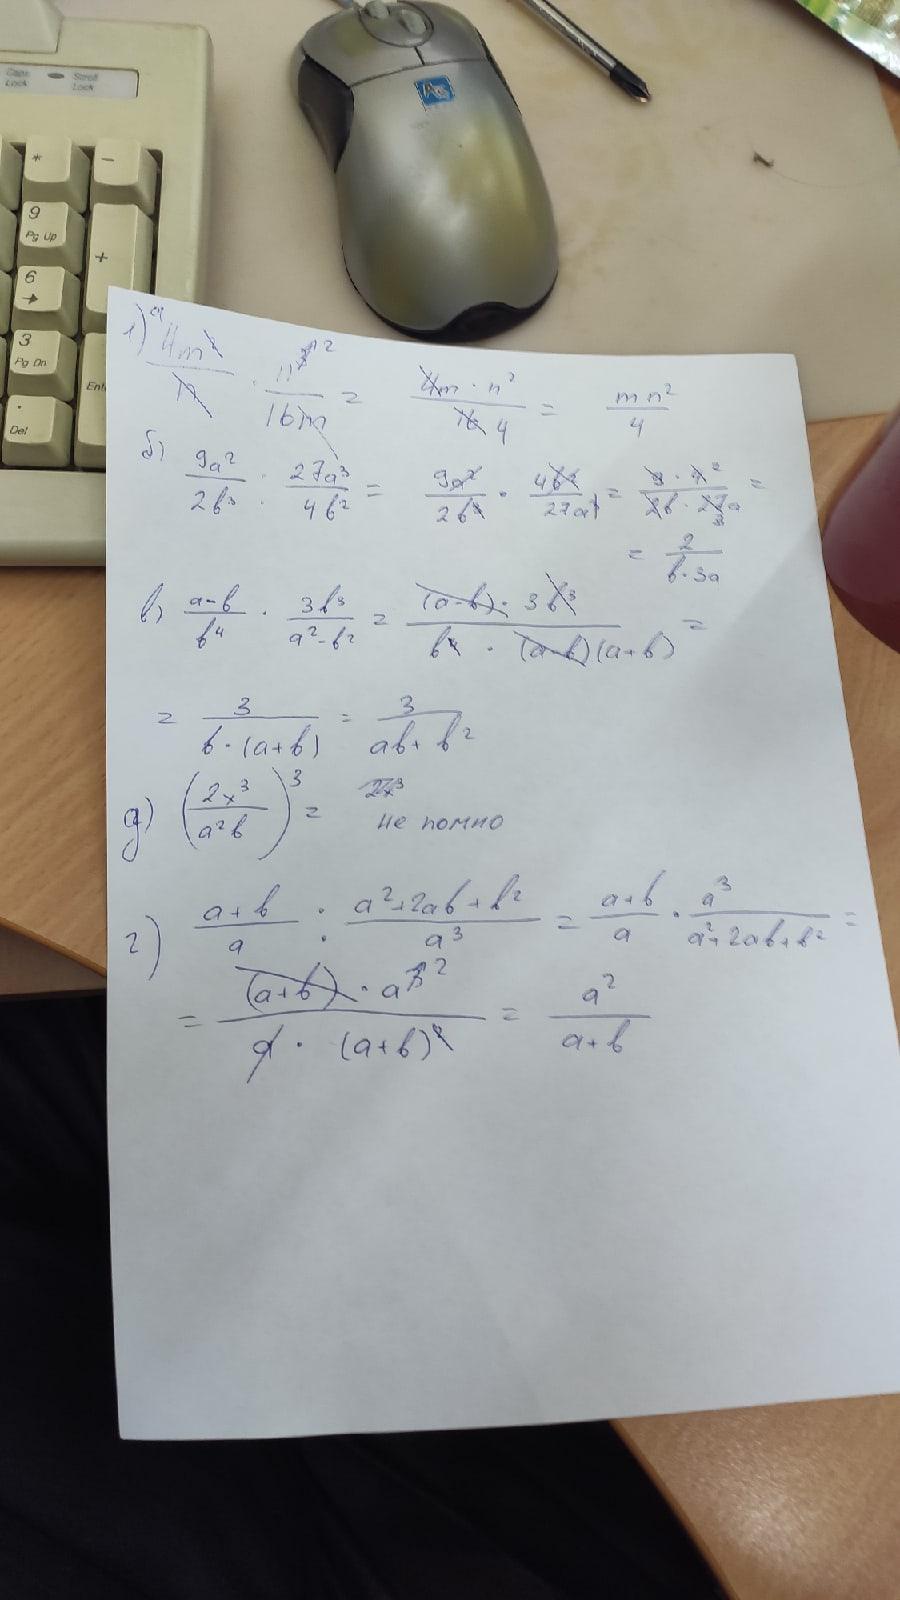 Caps Lock Scroll Lock
* -
9 Pg Up
+
6 →
3 Pg Dn
. Del
Ente
1) a) 4m²/n · n³/16m = 4m · n²/16 4 = mn²/4
б) 9a²/2b³ : 27a³/4b² = 9a²/2b³ · 4b²/27a³ = 9 · 4 2/2b · 27 3 a =
= 2/b·3a
в) a-b/b⁴ · 3b³/a²-b² = (a-b) · 3b³/b⁴ · (a-b)(a+b) =
= 3/b·(a+b) = 3/ab+b²
д) (2x³/a²b)³ = 2x³
не помно
г) a+b/a : a²+2ab+b²/a³ = a+b/a · a³/a²+2ab+b² =
= (a+b) · a³ 2/a · (a+b)² = a²/a+b